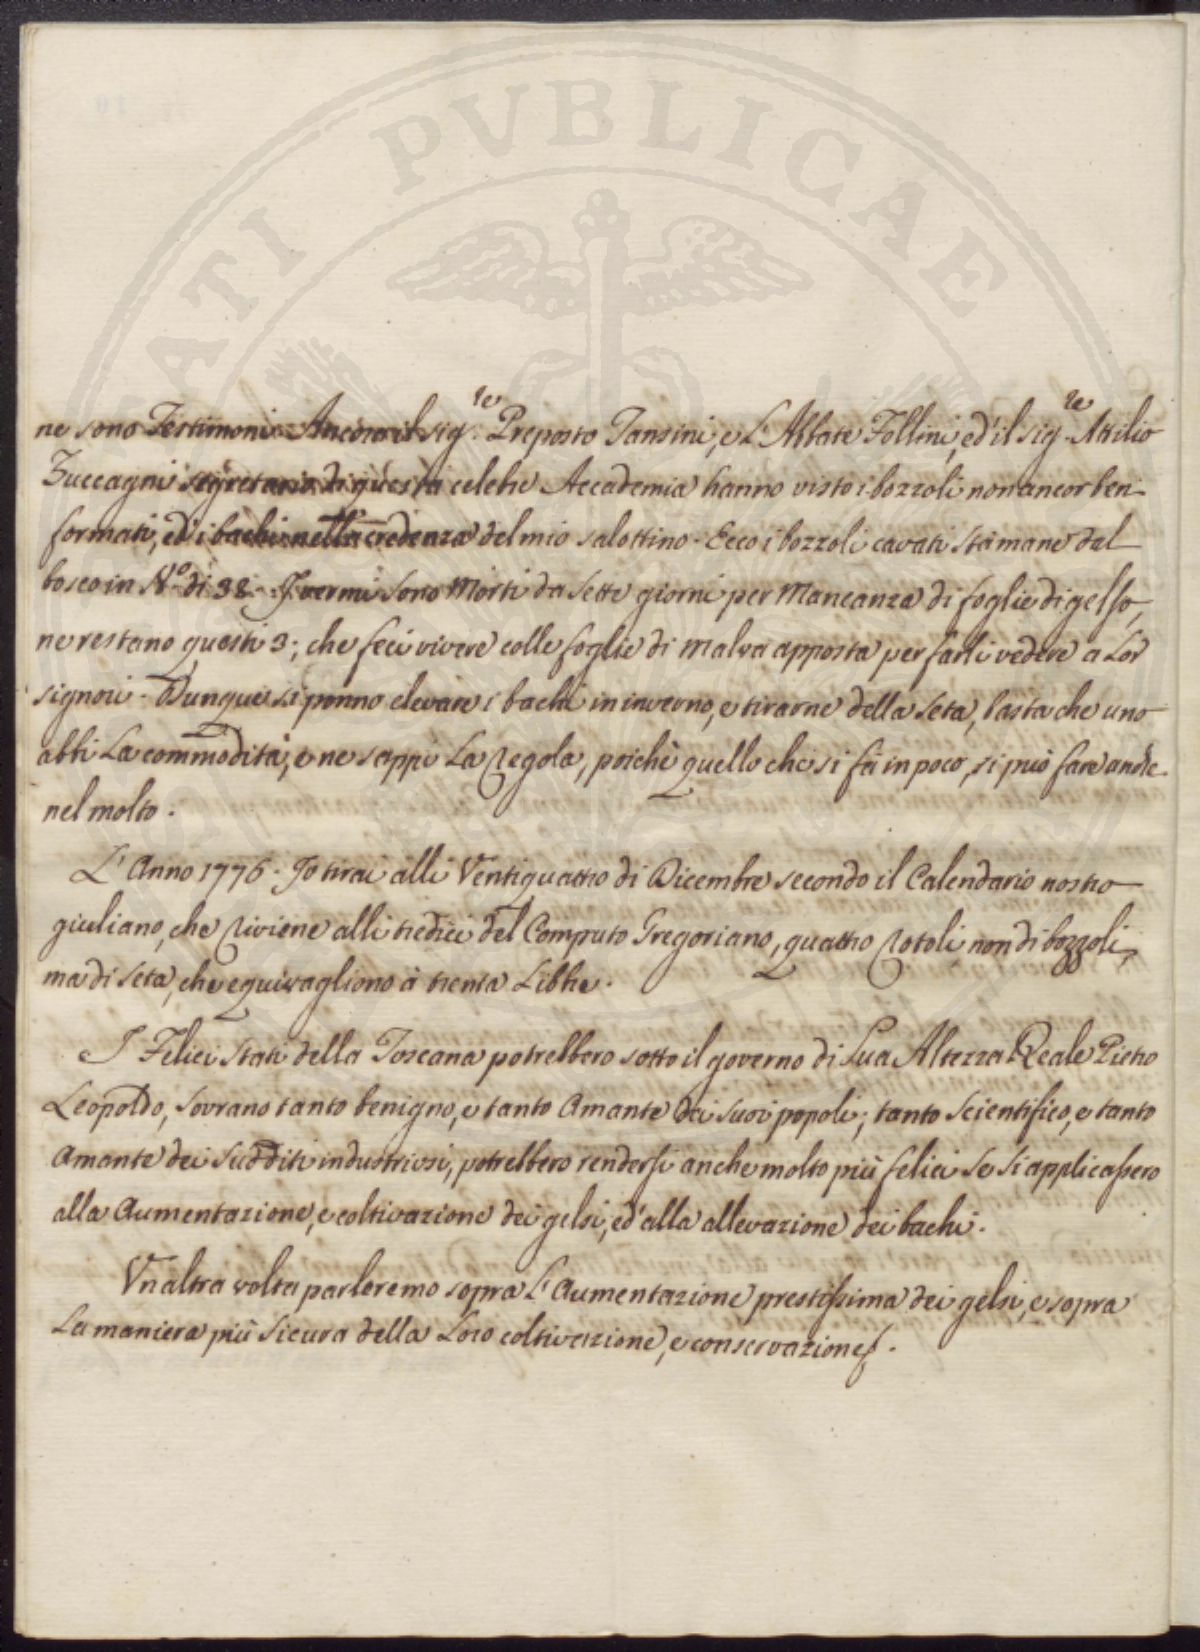 PUBLICAE
ne sono Testimoni. Ancora il sig.re Preposto Tansini, e L'Abbate Follini, ed' il sig.re Attilio
Zuccagni segretario di questa celebre Accademia hanno visto i bozzoli non ancor ben
formati, ed' i bachi nella credenza del mio salottino. Ecco i bozzoli cavati stamane dal
bosco in N.o di 38. I vermi sono Morti da sette giorni per Mancanza di foglie di gelso,
ne restano questi 3; che feci vivere colle foglie di malva apposta per farli vedere a Lor
signori. Dunque si ponno elevare i bachi in inverno, e tirarne della seta, basta che uno
abbi La commodità, e ne sappi La Regola, poichè quello che si fà in poco, si può fare anche
nel molto.
L'Anno 1776. Io tirai alli Ventiquattro di Dicembre secondo il Calendario nostro
giuliano, che Riviene alli tredici del Computo Gregoriano, quattro Rotoli, non di bozzoli,
ma di seta, che equivagliono à trenta Libbre.
I Felici Stati della Toscana potrebbero sotto il governo di Sua Altezza Reale Pietro
Leopoldo, sovrano tanto benigno, e tanto Amante dei suoi popoli; tanto scientifico, e tanto
Amante dei sudditi industriosi, potrebbero rendersi anche molto più felici se si applicassero
alla Aumentazione, e coltivazione dei gelsi, ed' alla allevazione dei bachi.
Un altra volta parleremo sopra L'Aumentazione prestissima dei gelsi, e sopra
La maniera più sicura della Loro coltivazione, e conservazione.